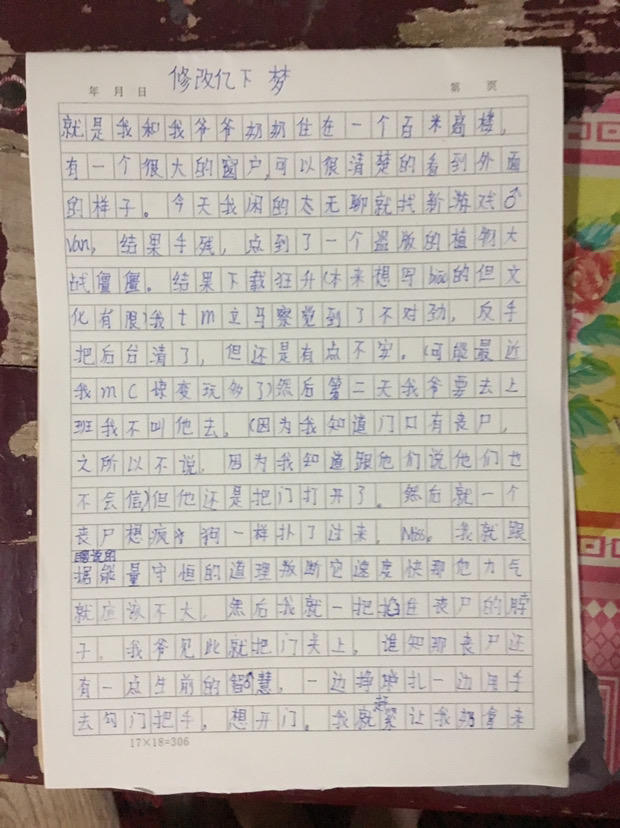 修改亿下 梦
年 月 日
第 页
就是我和我爷爷奶奶住在一个百米高楼，
有一个很大的窗户,可以很清楚的看到外面
的样子。今天我闲的太无聊就找新游戏♂
Van，结果手残，点到了一个盗版的植物大
战僵僵。结果下载狂升(本来想写的但文
化有限)我tm立马察觉到了不对劲，反手
把后台清了，但还是有点不安。(可能最近
我mC 块变玩多了)然后第二天我爷要去上
班我不叫他去。(因为我知道门口有丧尸，
文所以不说，因为我知道跟他们说他们也
不会信)但他还是把门打开了。然后就一个
丧尸想疯狗一样扑了过来。我就跟
据能量守恒的道理叛断它速度快那他力气
就应该不大，然后我就一把掐住丧尸的脖
子，我爷见此就把门关上，谁知那丧尸还
有一点生前的智♂慧，一边挣扎一边用手
去勾门把手，想开门。我就赶紧让我奶拿来
17×18=306